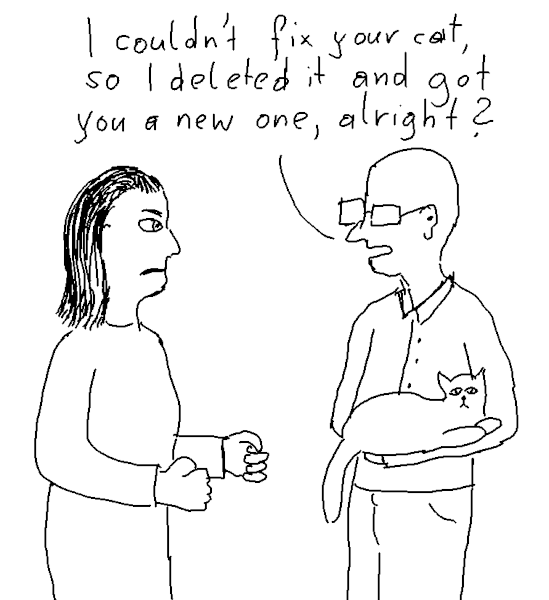 I couldn't fix your cat,
so I deleted it and got
you a new one, alright?